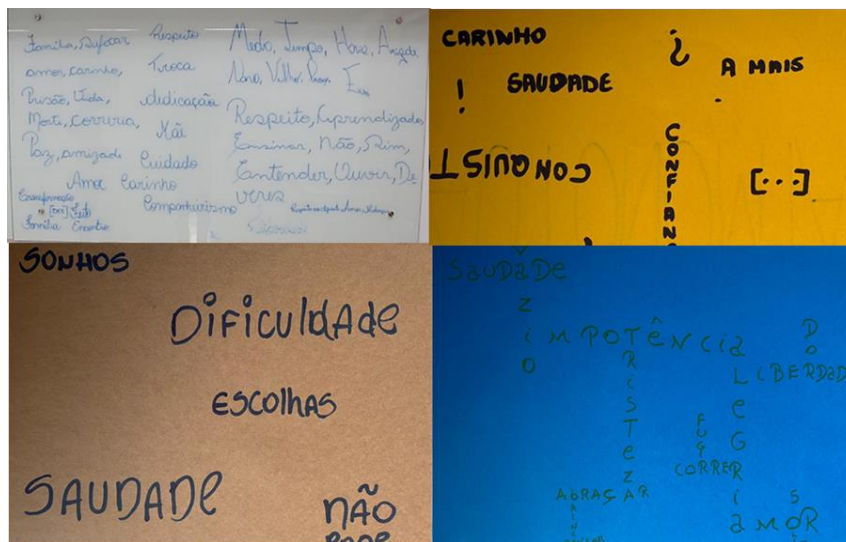 Família, Sufocar
amor, carinho,
Prisão, Vida,
Morte, correria,
Paz, amizade
Amor Carinho
Família Encontro
Respeito
Troca
dedicação
Mãe
Cuidado
Companheirismo
Medo, Tempo, Hora,
Novo, Velho,
Respeito, Aprendizado,
Ensinar, Não, Sim,
Entender, Ouvir, De
veres
CARINHO
¿
A MAIS
!
SAUDADE
.
CONQUIST
CONFIANÇ
[...]
SONHOS
DIFICULDADE
ESCOLHAS
SAUDADE
NÃO
SAUDADE
VAZIO
IMPOTÊNCIA
TRISTEZA
ALEGRIA
DO
LIBERDAD
FUGA
CORRER
ABRAÇAR
AMOR